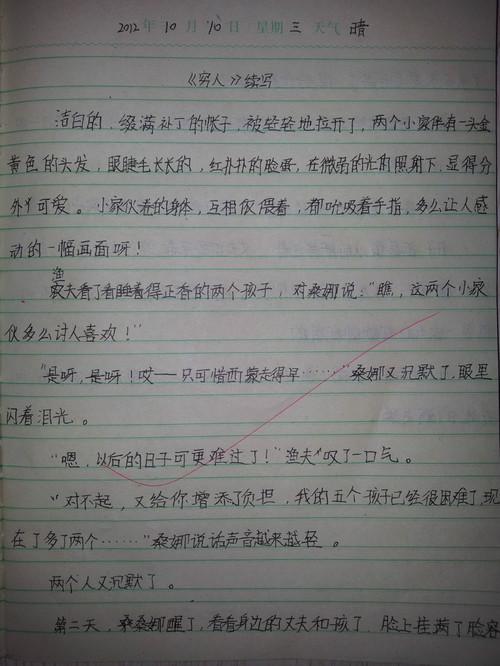 2012年 10 月 10 日 星期 三 天气 晴
《穷人》续写
洁白的、缀满补丁的帐子，被轻轻地拉开了，两个小家伙有一头金
黄色的头发，眼睫毛长长的，红扑扑的脸蛋，在微弱的光的照射下，显得分
外可爱。小家伙卷的身体，互相依偎着，都吮吸着手指，多么让人感
动的一幅画面呀！
渔夫看了看睡着得正香的两个孩子，对桑娜说：“瞧，这两个小家
伙多么讨人喜欢！”
“是呀，是呀！哎——只可惜西蒙走得早……”桑娜又沉默了，眼里
闪着泪光。
“嗯，以后的日子可更难过了！”渔夫叹了一口气。
“对不起，又给你增添了负担，我的五个孩子已经很困难了，现
在了多了两个……”桑娜说话声音越来越轻。
两个人又沉默了。
第二天，桑桑娜醒了，看看身边的丈夫和孩子，脸上挂满了脸容